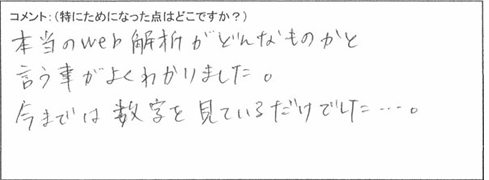 コメント：（特にためになった点はどこですか？）
本当のweb解析がどんなものかと
言う事がよくわかりました。
今までは数字を見ているだけでした…。